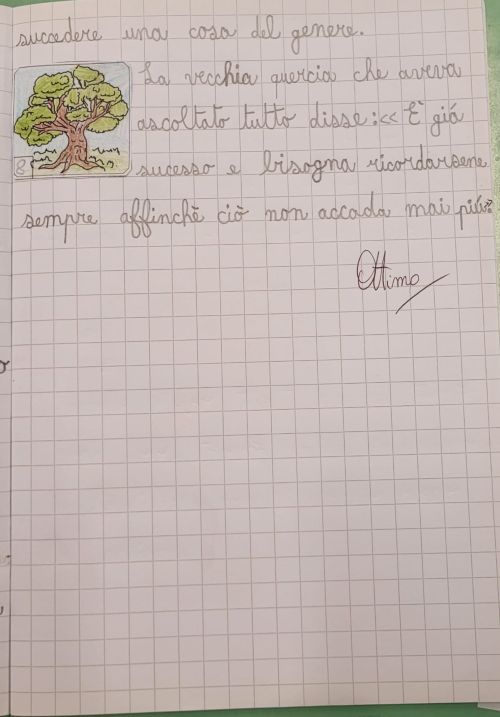 succedere una cosa del genere.
La vecchia quercia che aveva
ascoltato tutto disse:<< È già
sucesso e bisogna ricordarsene
sempre affinchè ciò non accada mai più>>
8
Ottimo